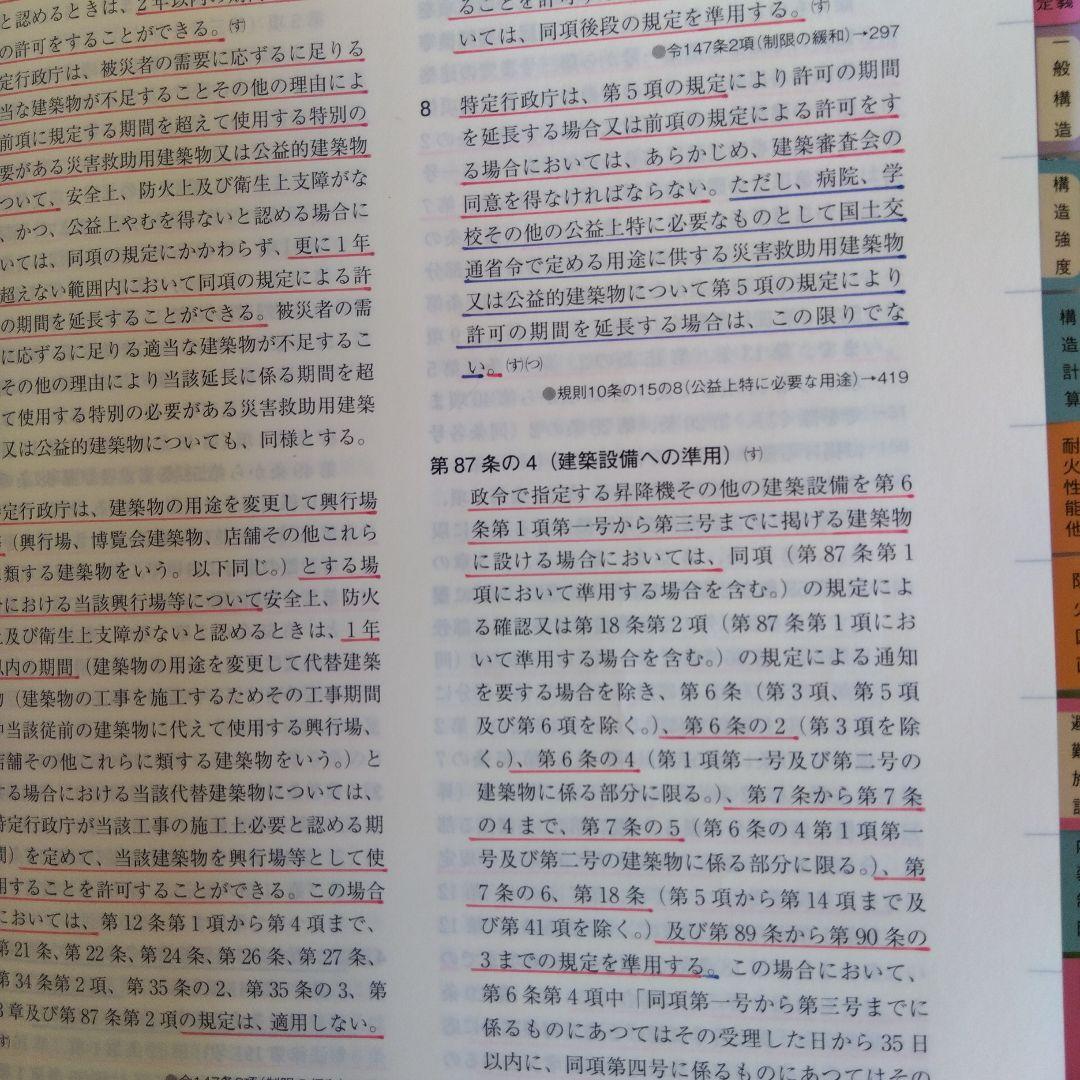 と認めるときは、2年以内の期
の許可をすることができる。(す)
定行政庁は、被災者の需要に応ずるに足りる
当な建築物が不足することその他の理由によ
前項に規定する期間を超えて使用する特別の
要がある災害救助用建築物又は公益的建築物
ついて、安全上、防火上及び衛生上支障がな
、かつ、公益上やむを得ないと認める場合に
いては、同項の規定にかかわらず、更に1年
超えない範囲内において同項の規定による許
の期間を延長することができる。被災者の需
に応ずるに足りる適当な建築物が不足するこ
その他の理由により当該延長に係る期間を超
て使用する特別の必要がある災害救助用建築
又は公益的建築物についても、同様とする。
定行政庁は、建築物の用途を変更して興行場
(興行場、博覧会建築物、店舗その他これら
類する建築物をいう。以下同じ。)とする場
における当該興行場等について安全上、防火
及び衛生上支障がないと認めるときは、1年
以内の期間(建築物の用途を変更して代替建築
(建築物の工事を施工するためその工事期間
当該従前の建築物に代えて使用する興行場、
店舗その他これらに類する建築物をいう。)と
する場合における当該代替建築物については、
特定行政庁が当該工事の施工上必要と認める期
間)を定めて、当該建築物を興行場等として使
用することを許可することができる。この場合
においては、第12条第1項から第4項まで、
第21条、第22条、第24条、第26条、第27条、
第34条第2項、第35条の2、第35条の3、第
3章及び第87条第2項の規定は、適用しない。
す)
いては、同項後段の規定を準用する。(す)
●令147条2項(制限の緩和)→297
8 特定行政庁は、第5項の規定により許可の期間
を延長する場合又は前項の規定による許可をす
る場合においては、あらかじめ、建築審査会の
同意を得なければならない。ただし、病院、学
校その他の公益上特に必要なものとして国土交
通省令で定める用途に供する災害救助用建築物
又は公益的建築物について第5項の規定により
許可の期間を延長する場合は、この限りでな
い。(す)(つ)
●規則10条の15の8(公益上特に必要な用途)→419
第87条の4(建築設備への準用)(す)
政令で指定する昇降機その他の建築設備を第6
条第1項第一号から第三号までに掲げる建築物
に設ける場合においては、同項(第87条第1
項において準用する場合を含む。)の規定によ
る確認又は第18条第2項(第87条第1項にお
いて準用する場合を含む。)の規定による通知
を要する場合を除き、第6条(第3項、第5項
及び第6項を除く。)、第6条の2(第3項を除
く。)、第6条の4(第1項第一号及び第二号の
建築物に係る部分に限る。)、第7条から第7条
の4まで、第7条の5(第6条の4第1項第一
号及び第二号の建築物に係る部分に限る。)、第
7条の6、第18条(第5項から第14項まで及
び第41項を除く。)及び第89条から第90条の
3までの規定を準用する。この場合において、
第6条第4項中「同項第一号から第三号までに
係るものにあつてはその受理した日から35日
以内に、同項第四号に係るものにあつてはその
定義
一般構造
構造強度
構造計算
耐火性能他